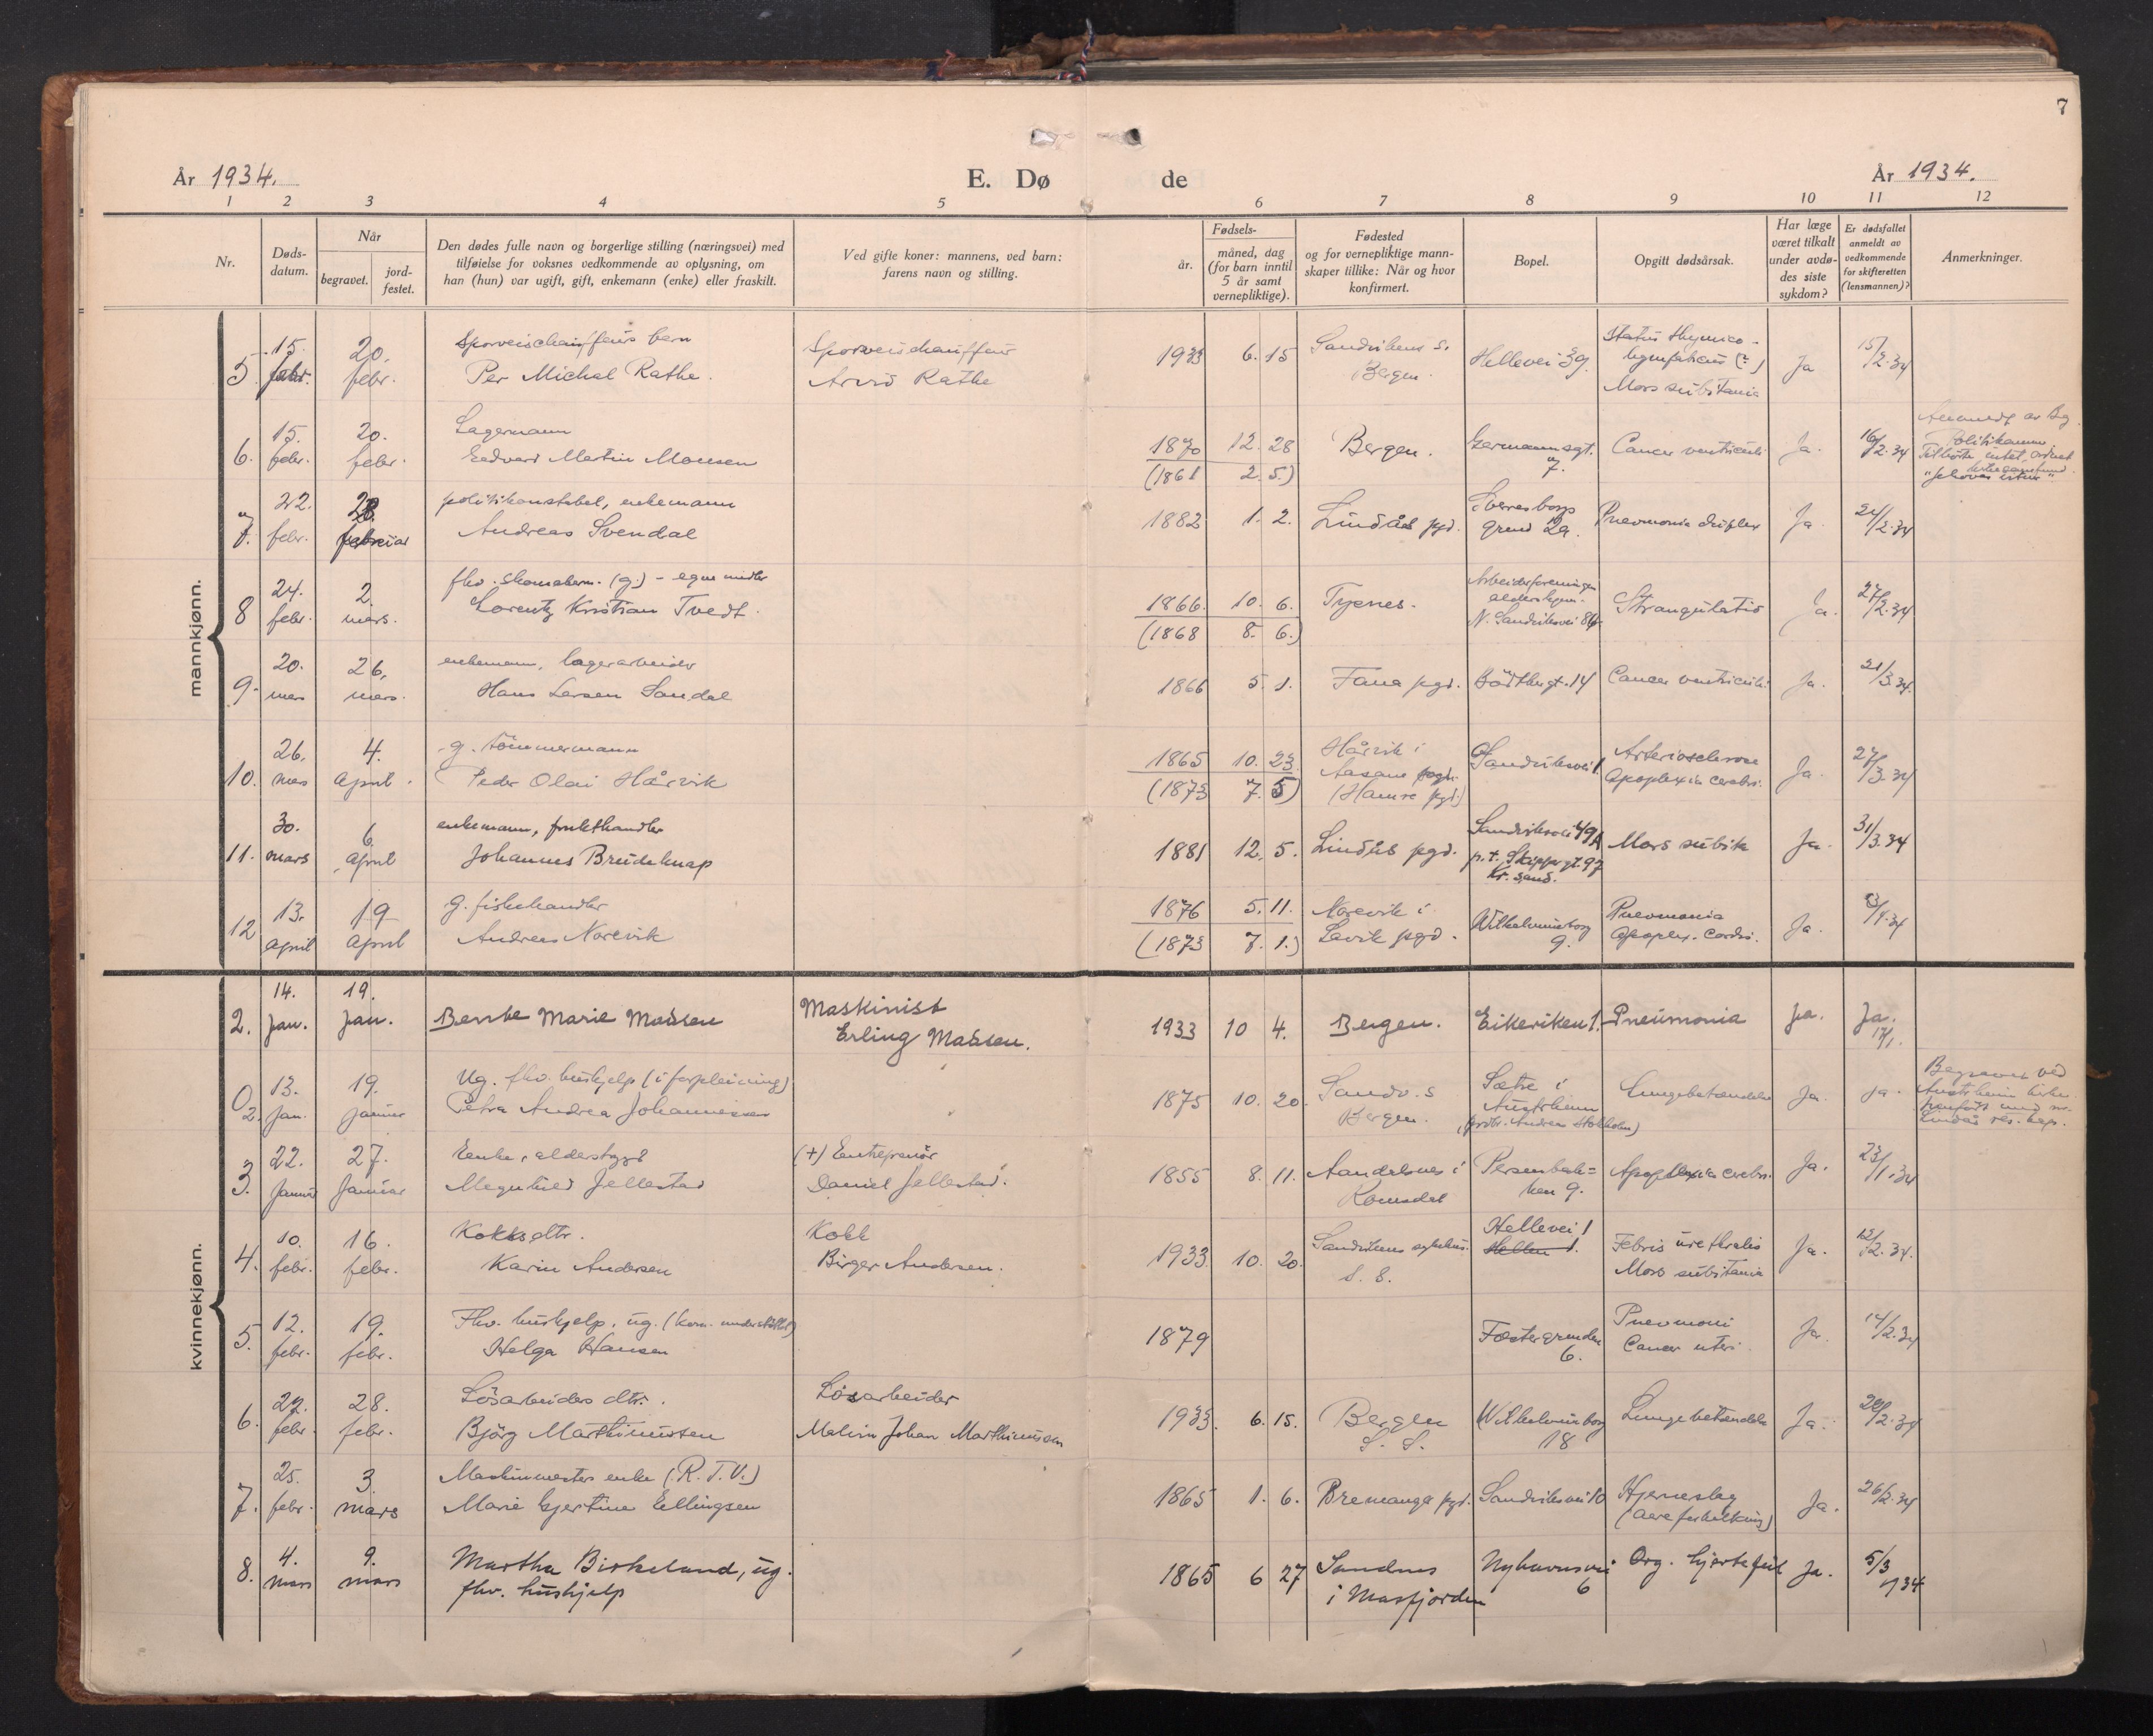 7
År 1934.
E. Dø
de
År 1934.
1 2 3 4 5 6 7 8 9 10 11 12
Nr.
Døds-
datum.
Når
begravet.
jord-
festet.
Den dødes fulle navn og borgerlige stilling (næringsvei) med
tilføielse for voksnes vedkommende av oplysning, om
han (hun) var ugift, gift, enkemann (enke) eller fraskilt.
Ved gifte koner: mannens, ved barn:
farens navn og stilling.
Fødsels-
år.
måned, dag
(for barn inntil
5 år samt
vernepliktige).
Fødested
og for vernepliktige mann-
skaper tillike: Når og hvor
konfirmert.
Bopel.
Opgitt dødsårsak.
Har læge
været tilkalt
under avdø-
des siste
sykdom?
Er dødsfallet
anmeldt av
vedkommende
for skifteretten
(lensmannen)?
Anmerkninger.
mannkjønn.
5 15. febr. 20. febr.
Sporveischauffeurs barn
Per Michal Rathe.
Sporveischauffeur
Arvid Rathe
1933 6. 15
Sandvikens s.
Bergen.
Hellevei 39.
Status thymico-
lymphaticus (?)
Mors subitania
Ja
15/2.34
6. 15. febr. 20. febr.
Lagermann
Edvard Martin Monsen
1870 12. 28
(1861 2. 5.)
Bergen.
7.
Cancer ventriculi
Ja.
16/2.34
Politikammer
Tilhørte intet ordnet
7. 22. febr. 28. februar
politikonstabel, enkemann
Andreas Svendal
1882 1. 2.
Lindås pgd.
Sverresborg
grend 2a.
Pneumonia duplex
Ja.
24/2.34
8 24. febr. 2. mars.
fhv. skomakerm. (g.) - egne midler
Lorentz Kristian Tvedt.
1866. 10. 6.
(1868 8. 6.)
Tysnes.
Arbeidsforeningens
aldershjem.
N. Sandviksvei 84
Strangulatio
Ja.
27/2.34
9. 20. mars 26. mars.
enkemann, lagerarbeider
Hans Larsen Sandal
1866 5. 1.
Fana pgd.
14
Cancer ventriculi
Ja.
21/3.34.
10. 26. mars 4. april.
g. tömmermann
Peder Olai Hårvik
1865 10. 23.
(1873 7. 5)
Hårvik i
Aasane pgd.
(Hamre pgd.)
Sandviksvei 1.
Arteriosclerose
Apoplexia cerebri.
Ja.
27/3.34
11. 30. mars 6. april
enkemann, frukthandler
Johannes Brudeknap
1881 12. 5.
Lindås pgd.
Sandviksvei 49A
p.t. Skippergt. 97
Kr. sand.
Mors subita
Ja.
31/3.34
12 13. april 19 april
g. fiskehandler
Andreas Norevik
1876 5. 11.
(1873 7. 1.)
Norevik i
Lavik pgd.
Wilhelminborg
9.
Pneumonia
Apoplex. cordis.
Ja.
kvinnekjønn.
2. 14. jan. 19. jan.
Bente Marie Madsen
Maskinist
Erling Madsen.
1933 10 4.
Bergen.
Eikeviken 1.
Pneumonia
Ja.
Ja.
17/1.
02. 13. Jan. 19. januar
Ug. fhv. hushjelp (i forpleining)
Petra Andrea Johannessen
1875 10. 20.
Sandv. s
Bergen.
Sætre i
Austrheim
Lungebetændelse
Ja.
ja.
Begravet ved
Austrheim kirke.
3. 22. januar 27. januar
Enke, alderstrygd
Magnhild Jellestad
(+) Entreprenör
Daniel Jellestad.
1855 8. 11.
Aandalsnes i
Romsdal
Persenbak=
ken 9.
Apoplexia cerebri.
Ja.
23/1.34
4. 10. febr. 16. febr.
Kokks dtr.
Karin Andersen
Kokk
Birger Andersen.
1933 10. 20.
Sandvikens sykehus.
S. S.
Hellevei 1
Hellen 1.
Febris urethralis
Mors subitania
Ja.
12/2.34.
5. 12. febr. 19. febr.
Fhv. hushjelp, ug. (kom. understöttet)
Helga Hansen
1879
6.
Pneumoni
Cancer uteri.
Ja.
14/2.34
6. 22. febr. 28. febr.
Lösarbeiders dtr.
Björg Marthinussen
Lösarbeider
Malvin Johan Marthinussen
1933. 6. 15.
Bergen
S. S.
Wilhelminborg
18
Lungebetændelse
Ja.
7. 25. febr. 3. mars
Maskinmesters enke (R.T.V.)
Marie Gjertine Ellingsen
1865 1. 6.
Bremanger pgd.
Sandviksvei 10
Hjerneslag
(aareforkalkning)
Ja.
26/2.34
8. 4. mars 9. mars
Martha Birkeland, ug.
fhv. hushjelp
1865 6 27
Sandnes
i Masfjorden
Nyhavnsvei
6
Org. hjertefeil
Ja.
5/3 1934